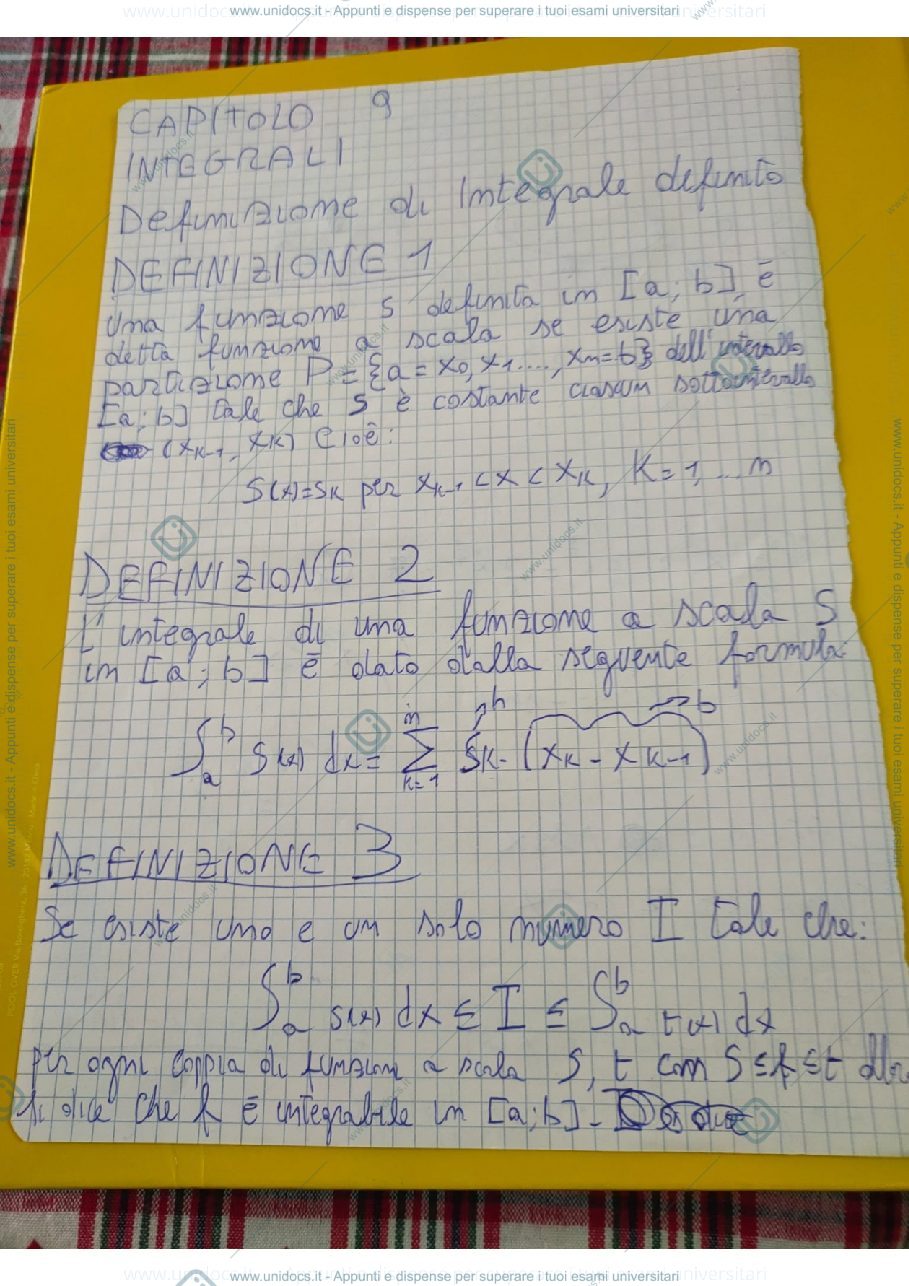 www.unidocs.it - Appunti e dispense per superare i tuoi esami universitari
CAPITOLO 9
INTEGRALI
Definizione di Integrale definito
DEFINIZIONE 1
Una funzione s definita in [a; b], è
detta funzione a scala se esiste una
partizione P = {a = x0, x1...., xn=b} dell'intervallo
[a; b] tale che s è costante ciascun sottointervallo
(xk-1, xk) Cioè:
S(x)=Sk per xk-1 < x < xk, K=1, ... n
DEFINIZIONE 2
L'integrale di una funzione a scala S
in [a; b] è dato dalla seguente formula:
h b
∫ab S(x) dx = ∑k=1n Sk · (xk - xk-1)
DEFINIZIONE 3
Se esiste uno e un solo numero I tale che:
∫ab s(x) dx ≤ I ≤ ∫ab t(x) dx
per ogni coppia di funzioni a scala S, t con S ≤ f ≤ t
si dice che f è integrabile in [a; b].
www.unidocs.it - Appunti e dispense per superare i tuoi esami universitari